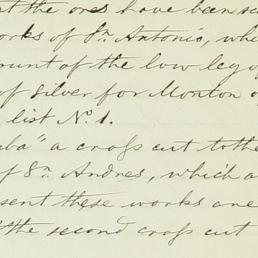 t the ores have been
orks of Sn. Antonio, whe
ount of the low ley o
of silver for Monton o
list No. 1.
ba" a cross cut to the
of Sn. Andres, which a
sent these works are
f the second cross cut